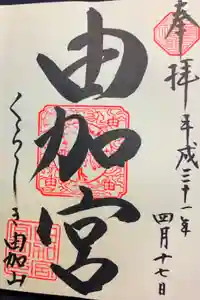 奉拝
平成三十一年
四月十七日
由加宮
くらしき
由加山